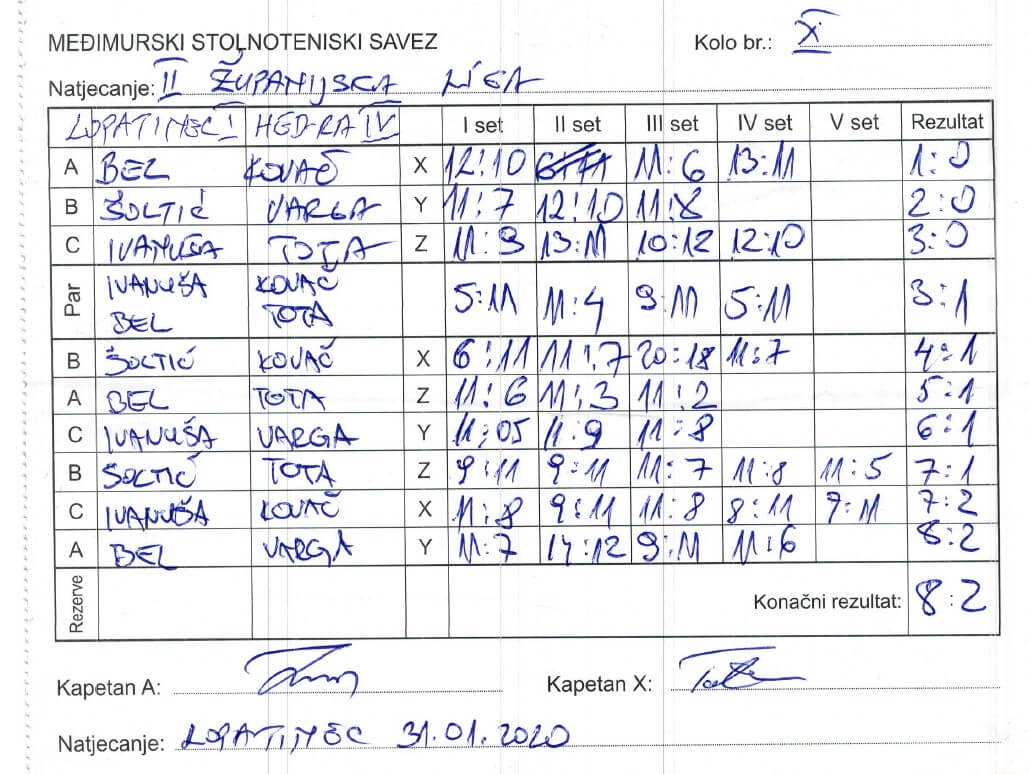 MEĐIMURSKI STOLNOTENISKI SAVEZ
Kolo br.: X
Natjecanje: II ŽUPANIJSKA LIGA
LOPATINEC I HED-RA IV I set II set III set IV set V set Rezultat
A BEL KOVAČ X 12:10 11:6 13:11 1:0
B ŠOLTIĆ VARGA Y 11:7 12:10 11:8 2:0
C IVANUŠA TOTA Z 11:9 13:11 10:12 12:10 3:0
Par IVANUŠA KOVAČ 5:11 11:4 9:11 5:11 3:1
BEL TOTA
B ŠOLTIĆ KOVAČ X 6:11 11:7 20:18 11:7 4:1
A BEL TOTA Z 11:6 11:3 11:2 5:1
C IVANUŠA VARGA Y 11:05 11:9 11:8 6:1
B ŠOLTIĆ TOTA Z 9:11 9:11 11:7 11:8 11:5 7:1
C IVANUŠA KOVAČ X 11:8 9:11 11:8 8:11 9:11 7:2
A BEL VARGA Y 11:7 14:12 9:11 11:6 8:2
Rezerve Konačni rezultat: 8:2
Kapetan A:
Kapetan X:
Natjecanje: LOPATINEC 31.01.2020